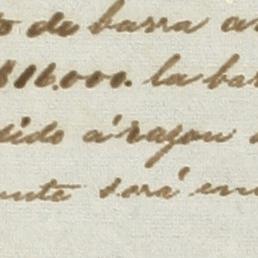 to de barra a
$16.000. la ba
dido á razon
ente será en